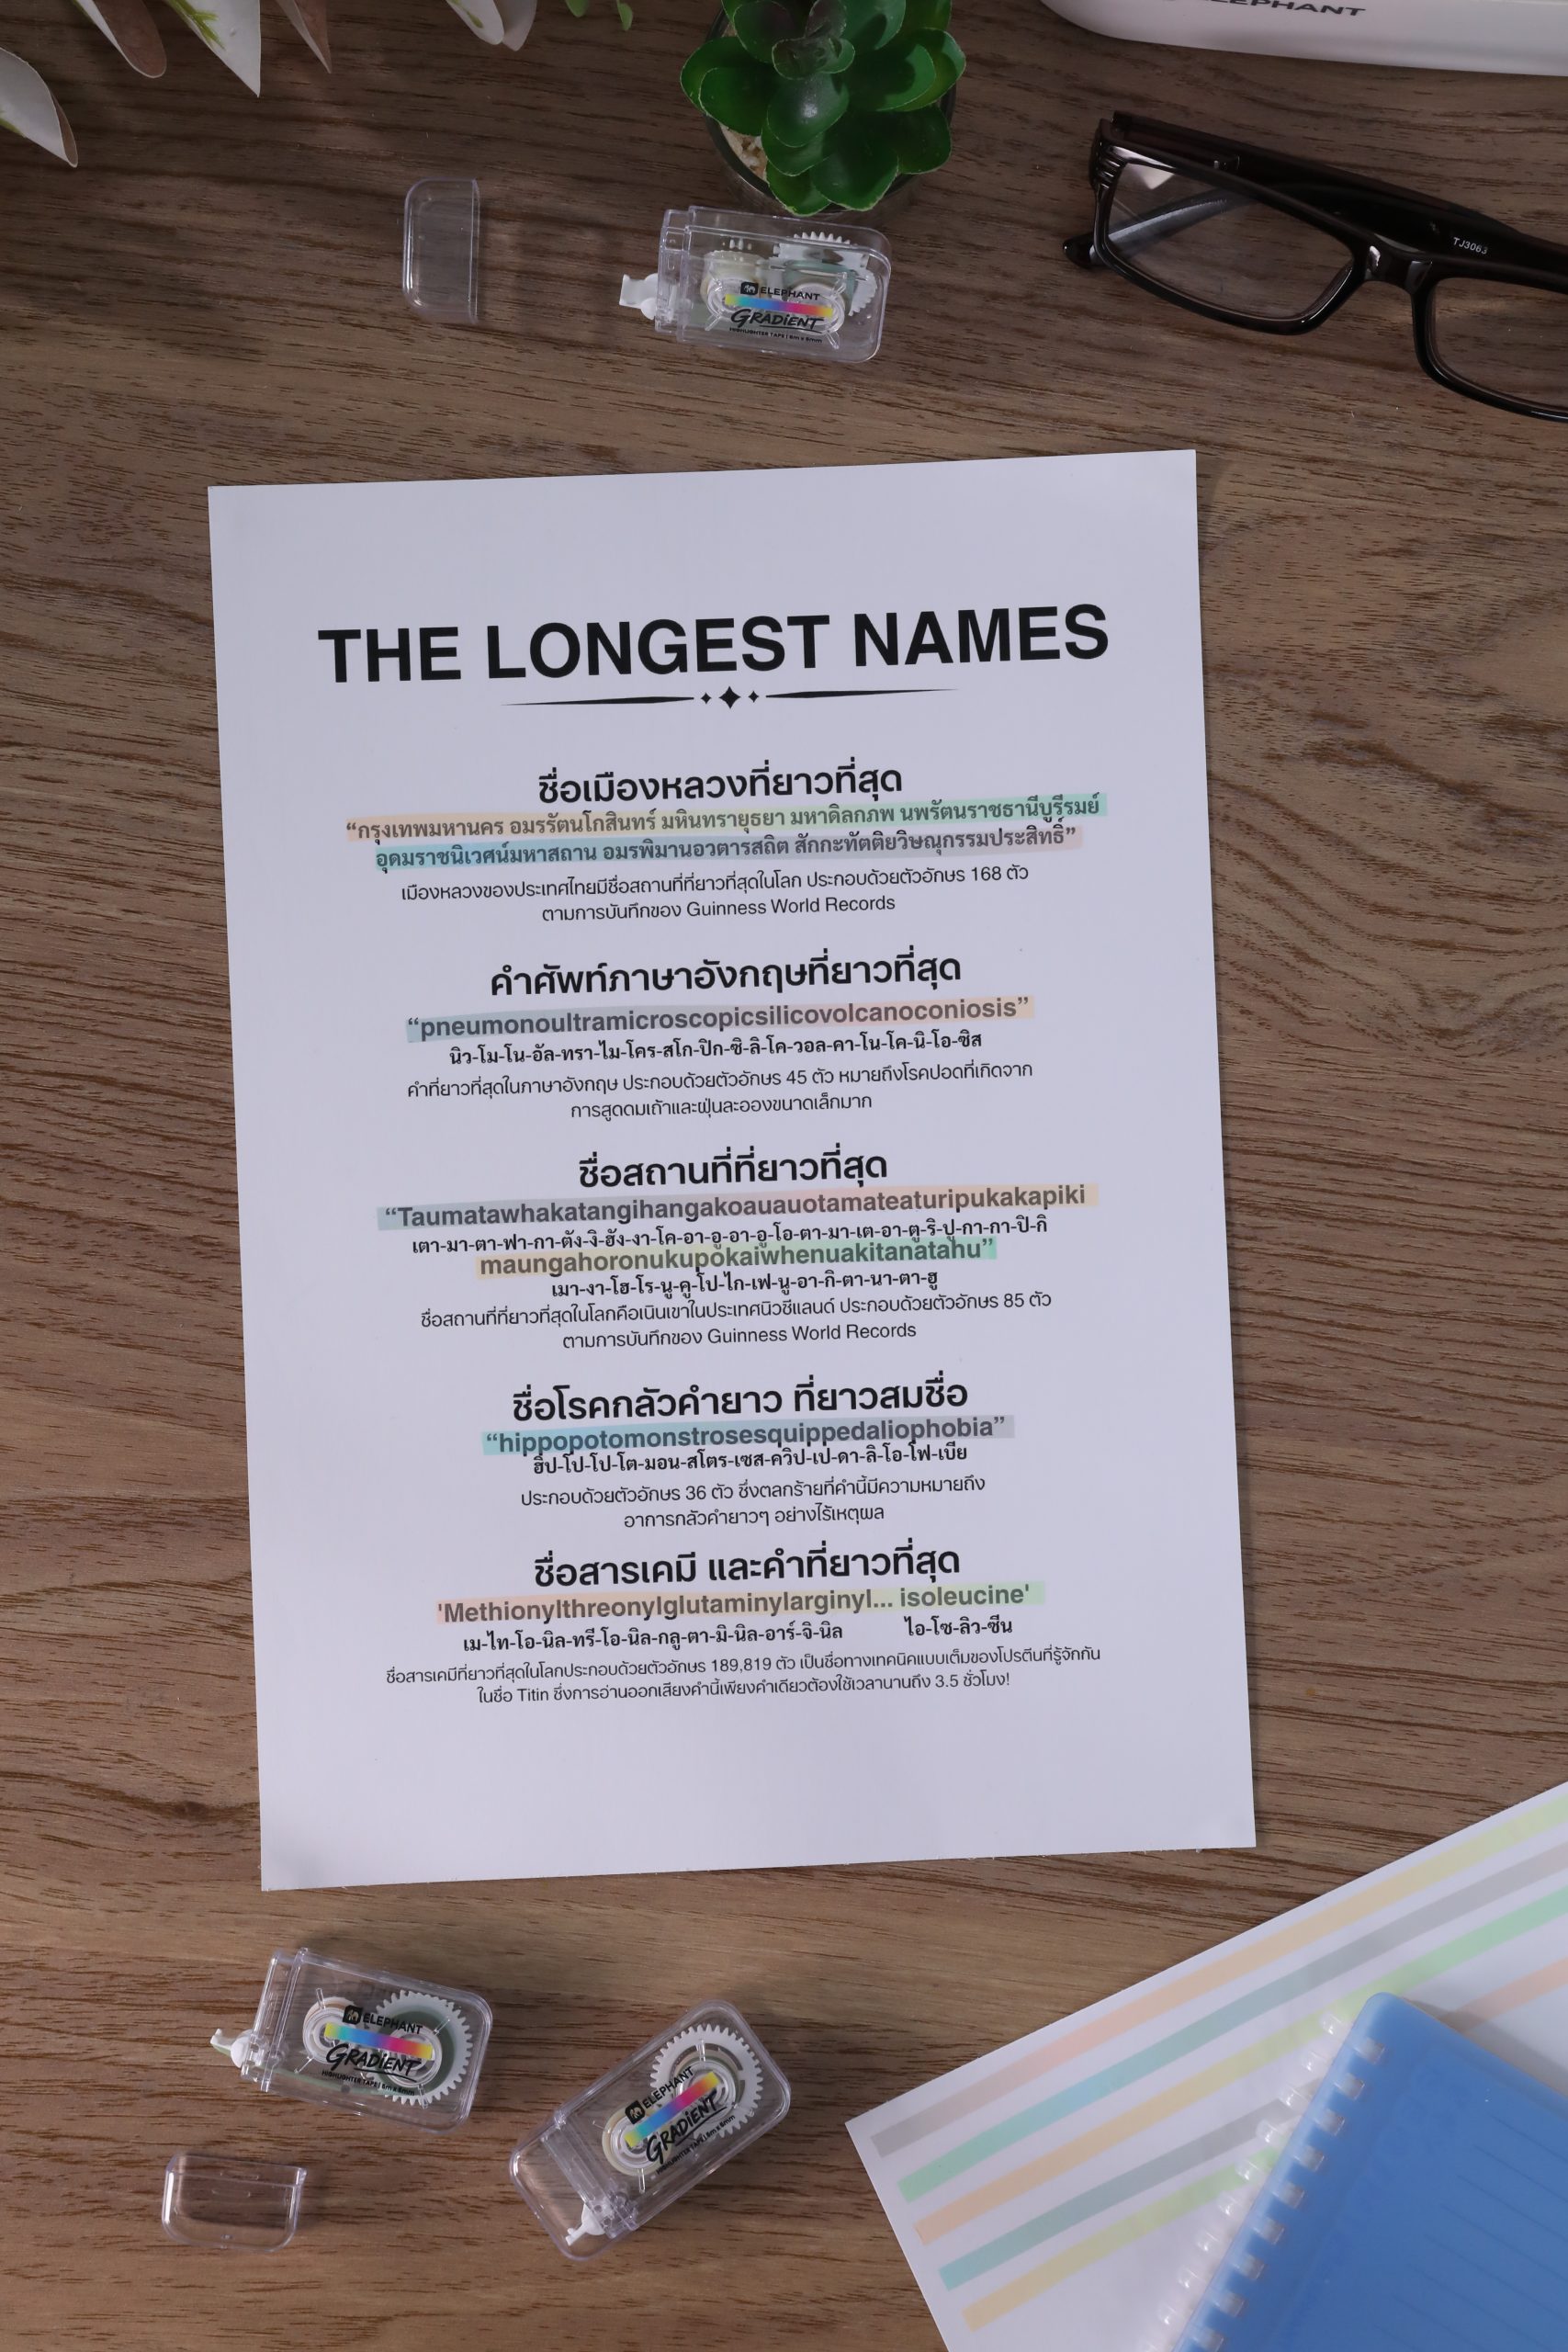 ELEPHANT
TJ3063
ELEPHANT
GRADIENT
HIGHLIGHTER TAPE | 6m x 6mm
THE LONGEST NAMES
ชื่อเมืองหลวงที่ยาวที่สุด
“กรุงเทพมหานคร อมรรัตนโกสินทร์ มหินทรายุธยา มหาดิลกภพ นพรัตนราชธานีบูรีรมย์
อุดมราชนิเวศน์มหาสถาน อมรพิมานอวตารสถิต สักกะทัตติยวิษณุกรรมประสิทธิ์”
เมืองหลวงของประเทศไทยมีชื่อสถานที่ที่ยาวที่สุดในโลก ประกอบด้วยตัวอักษร 168 ตัว
ตามการบันทึกของ Guinness World Records
คำศัพท์ภาษาอังกฤษที่ยาวที่สุด
“pneumonoultramicroscopicsilicovolcanoconiosis”
นิว-โม-โน-อัล-ทรา-ไม-โคร-สโก-ปิก-ซิ-ลิ-โค-วอล-คา-โน-โค-นิ-โอ-ซิส
คำที่ยาวที่สุดในภาษาอังกฤษ ประกอบด้วยตัวอักษร 45 ตัว หมายถึงโรคปอดที่เกิดจาก
การสูดดมเถ้าและฝุ่นละอองขนาดเล็กมาก
ชื่อสถานที่ที่ยาวที่สุด
“Taumatawhakatangihangakoauauotamateaturipukakapiki
เตา-มา-ตา-ฟา-กา-ตัง-งิ-ฮัง-งา-โค-อา-อู-อา-อู-โอ-ตา-มา-เต-อา-ตู-ริ-ปู-กา-กา-ปิ-กิ
maungahoronukupokaiwhenuakitanatahu”
เมา-งา-โฮ-โร-นู-คู-โป-ไก-เฟ-นู-อา-กิ-ตา-นา-ตา-ฮู
ชื่อสถานที่ที่ยาวที่สุดในโลกคือเนินเขาในประเทศนิวซีแลนด์ ประกอบด้วยตัวอักษร 85 ตัว
ตามการบันทึกของ Guinness World Records
ชื่อโรคกลัวคำยาว ที่ยาวสมชื่อ
“hippopotomonstrosesquippedaliophobia”
ฮิป-โป-โป-โต-มอน-สโตร-เซส-ควิป-เป-ดา-ลิ-โอ-โฟ-เบีย
ประกอบด้วยตัวอักษร 36 ตัว ซึ่งตลกร้ายที่คำนี้มีความหมายถึง
อาการกลัวคำยาวๆ อย่างไร้เหตุผล
ชื่อสารเคมี และคำที่ยาวที่สุด
'Methionylthreonylglutaminylarginyl... isoleucine'
เม-ไท-โอ-นิล-ทรี-โอ-นิล-กลู-ตา-มิ-นิล-อาร์-จิ-นิล ไอ-โซ-ลิว-ซีน
ชื่อสารเคมีที่ยาวที่สุดในโลกประกอบด้วยตัวอักษร 189,819 ตัว เป็นชื่อทางเทคนิคแบบเต็มของโปรตีนที่รู้จักกัน
ในชื่อ Titin ซึ่งการอ่านออกเสียงคำนี้เพียงคำเดียวต้องใช้เวลานานถึง 3.5 ชั่วโมง!
ELEPHANT
GRADIENT
HIGHLIGHTER TAPE | 6m x 6mm
ELEPHANT
GRADIENT
HIGHLIGHTER TAPE | 6m x 6mm